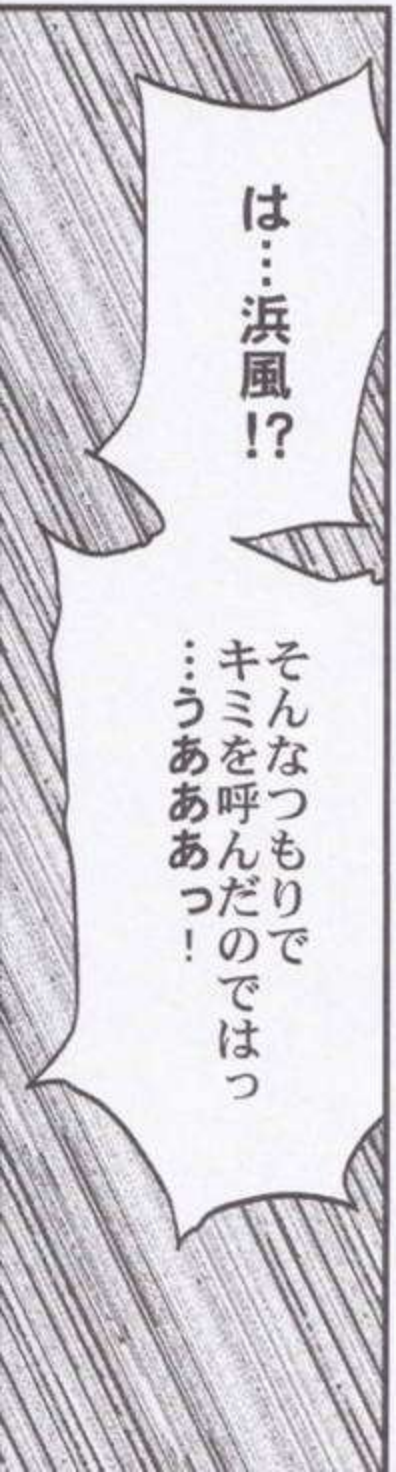 は…浜風!?
そんなつもりで
キミを呼んだのではっ
…うあああっ!